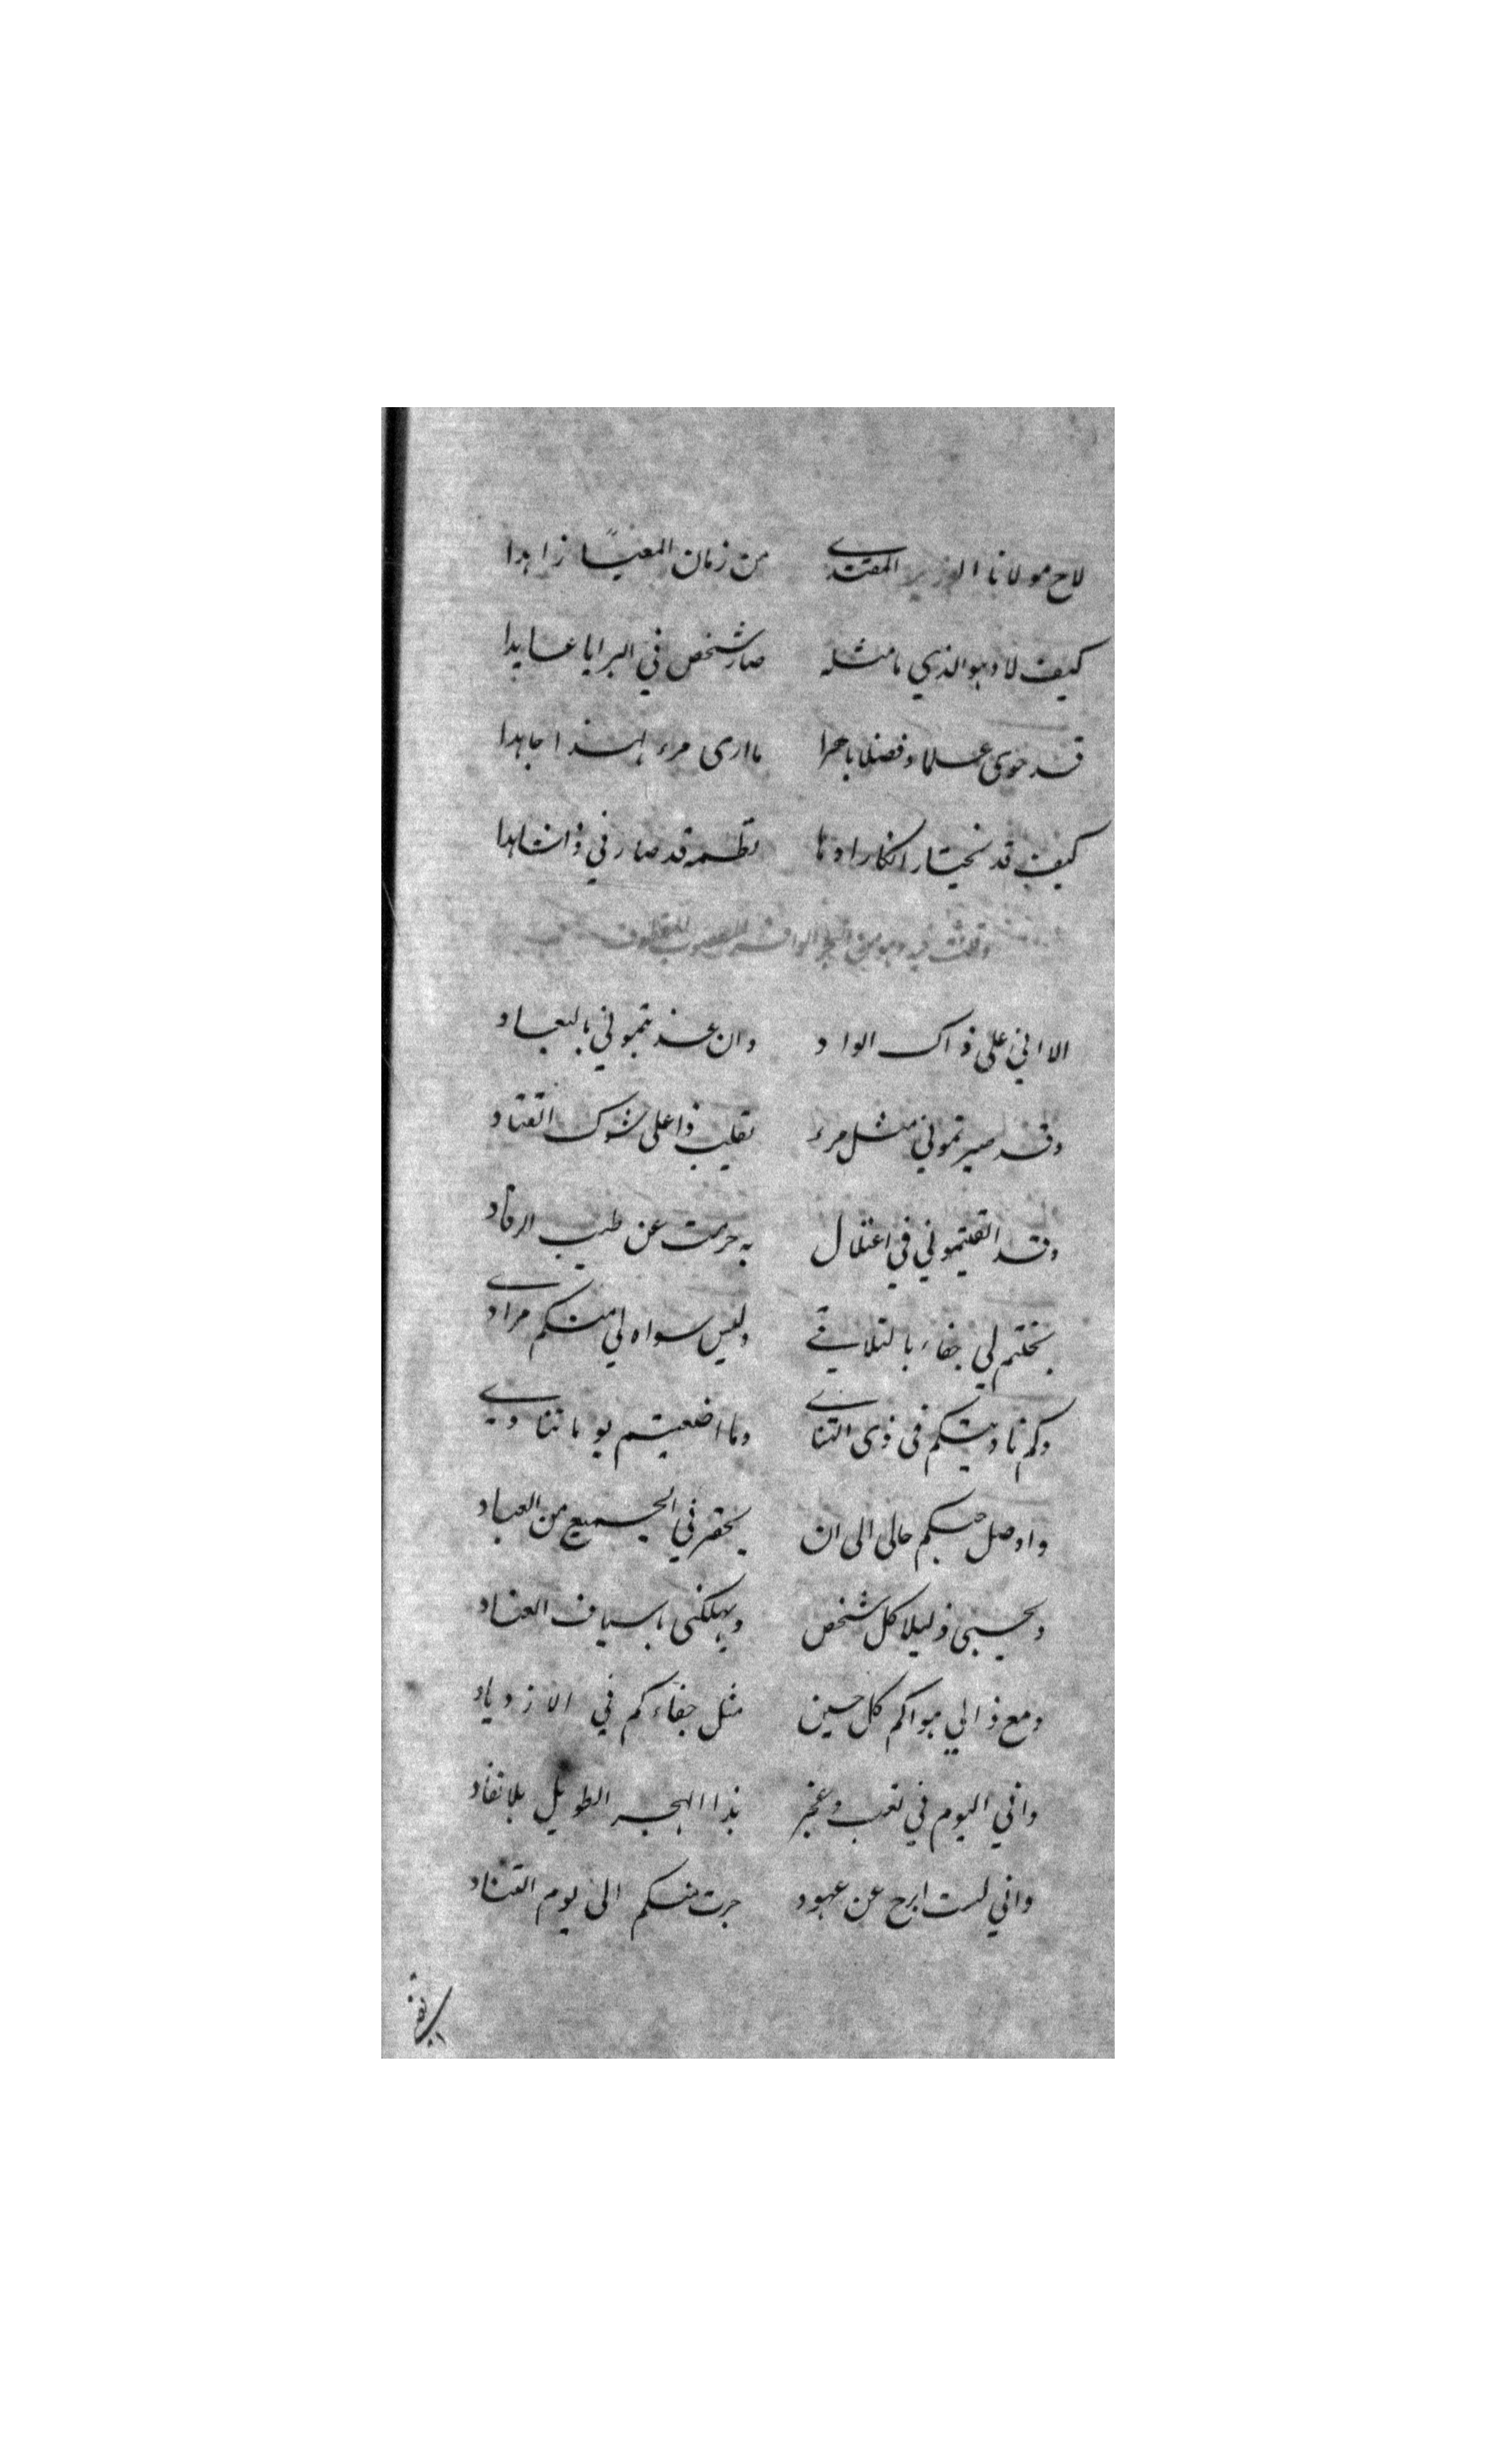 لاح مولانا الوزير المقتدے من زمان المعنیاً زاهدا
كيف لا وهو الذي ما مثله صار شخص في البرايا عابدا
قد حوى علما و فضلا باهرا ما ارى مرء لهذا جاهدا
كيف قد نختار انكارا وما نظمه قد صار في ذا شاهدا
وقلت فيه وهو من البحر الوافر المعصوب المقطوف
الا اني على ذاك الوداد وان عذبتموني بالبعاد
وقد صيرتموني مثل مرء تقلب ذا على شوك القتاد
وقد القيتموني في اعتلال به حرمت عن طيب الرقاد
بخلتم لي جفاء بالتلاقے وليس سواه لي منكم مرادے
وكم ناديتكم في ذي التنادے وما اضعيتم يوما تنادے
واوصل حبكم حالي الى ان يحقرني الجميع من العباد
ويحسبني ذليلا كل شخص ويهلكني باسياف العناد
ومع ذا لي هواكم كل حين مثل جفاءكم في الازدياد
واني اليوم في تعب وعجز بذا الهجر الطويل بلا نفاد
واني لست ابرح عن عهود جرت منكم الى يوم التناد